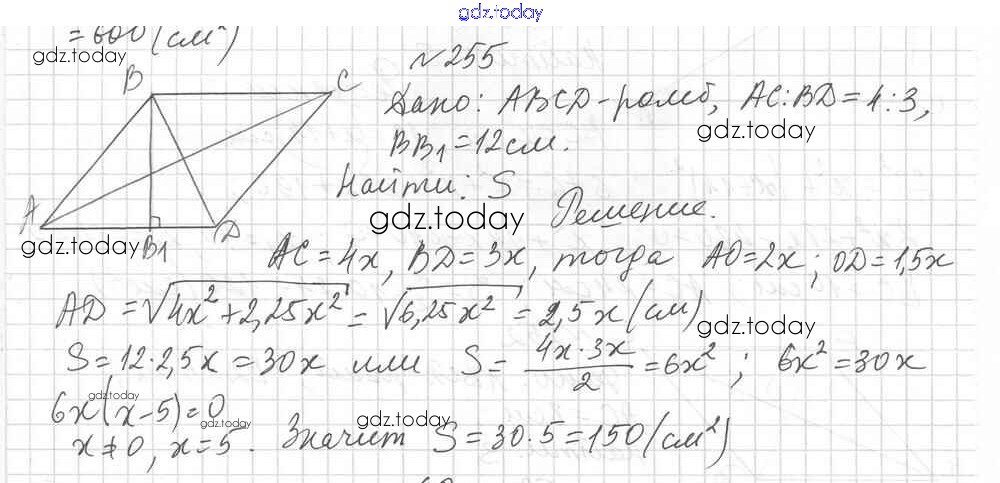 gdz.today
= 600 (см²)
gdz.today
№255
B
C
Дано: ABCD - ромб, AC:BD = 4:3,
gdz.today
BB₁ = 12 см.
Найти: S
A
gdz.today
Решение.
gdz.today
B₁
D
AC = 4x, BD = 3x, тогда AO = 2x; OD = 1,5x
AD = √4x² + 2,25x² = √6,25x² = 2,5x (см)
gdz.today
S = 12·2,5x = 30x или S = 4x·3x/2 = 6x²; 6x² = 30x
gdz.today
6x(x-5) = 0
gdz.today
gdz.today
x ≠ 0, x = 5. Значит S = 30·5 = 150 (см²)